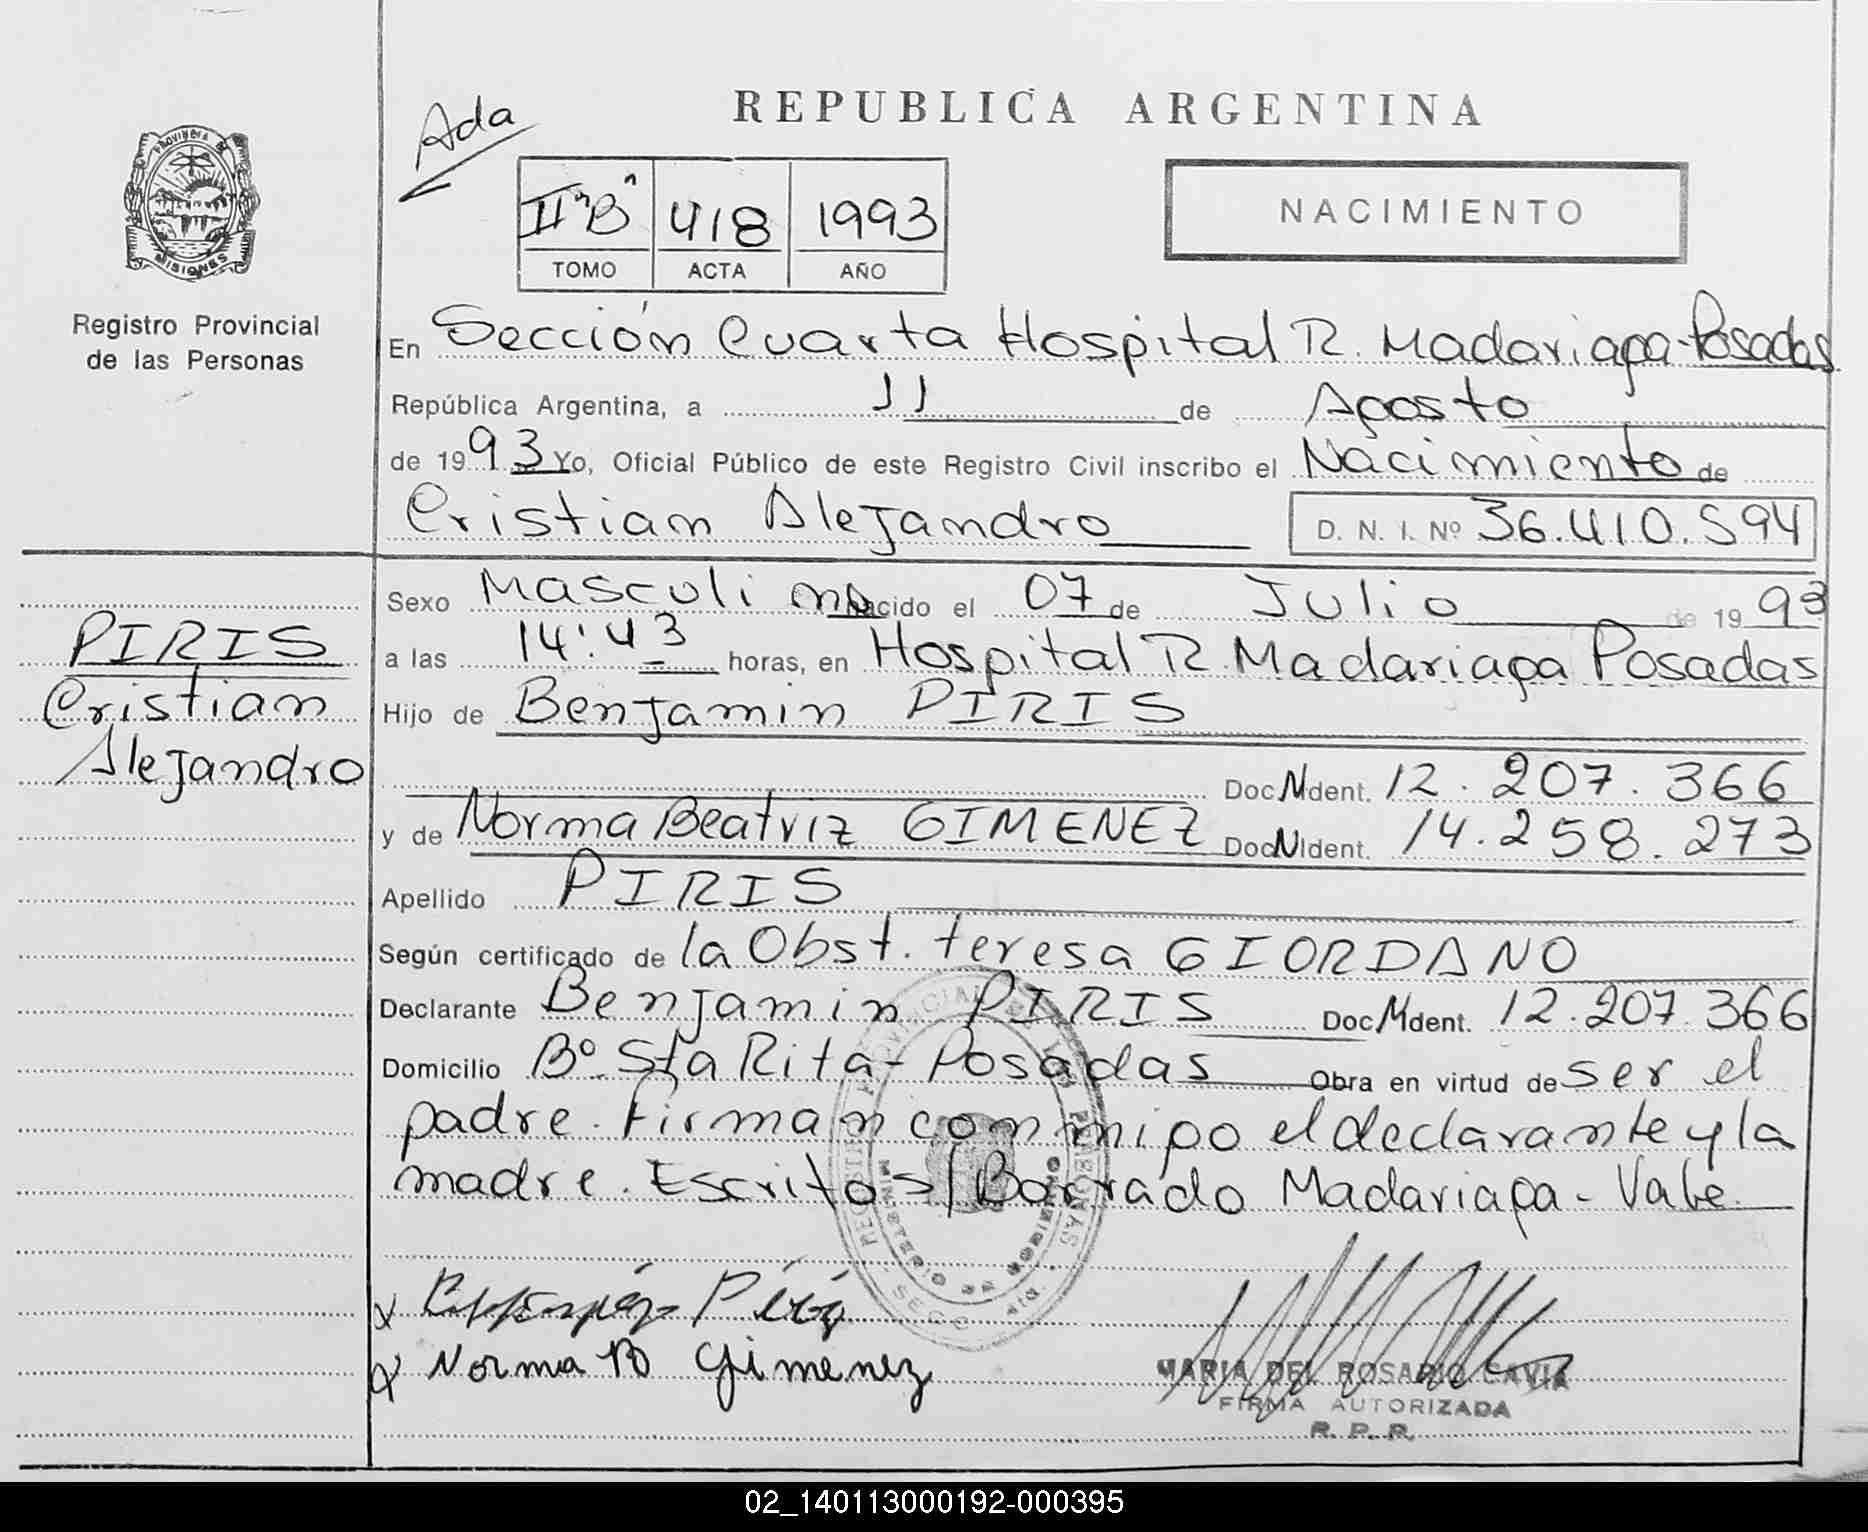 REPUBLICA ARGENTINA
Ada
PROVINCIA DE
MISIONES
II "B" 418 1993
TOMO ACTA AÑO
NACIMIENTO
Registro Provincial
de las Personas
En Sección Cuarta Hospital R. Madariaga-Posadas
República Argentina, a 11 de Agosto
de 1993 Yo, Oficial Público de este Registro Civil inscribo el Nacimiento de
Cristian Alejandro D. N. I. Nº 36.410.594
Sexo Masculino nacido el 07 de Julio de 1993
a las 14:43 horas, en Hospital R. Madariaga Posadas
Hijo de Benjamin PIRIS
Doc N Ident. 12.207.366
y de Norma Beatriz GIMENEZ Doc N Ident. 14.258.273
Apellido PIRIS
Según certificado de la Obst. teresa GIORDANO
Declarante Benjamin PIRIS Doc N Ident. 12.207.366
Domicilio Bº Sta Rita - Posadas Obra en virtud de ser el
padre. Firman conmigo el declarante y la
madre. Escrito s/Borrado Madariaga - Vale
PIRIS
Cristian
Alejandro
REGISTRO PROVINCIAL DE LAS PERSONAS
MINISTERIO DE GOBIERNO
x Norma B Gimenez
MARIA DEL ROSARIO CAVIA
FIRMA AUTORIZADA
R. P. P.
02_140113000192-000395